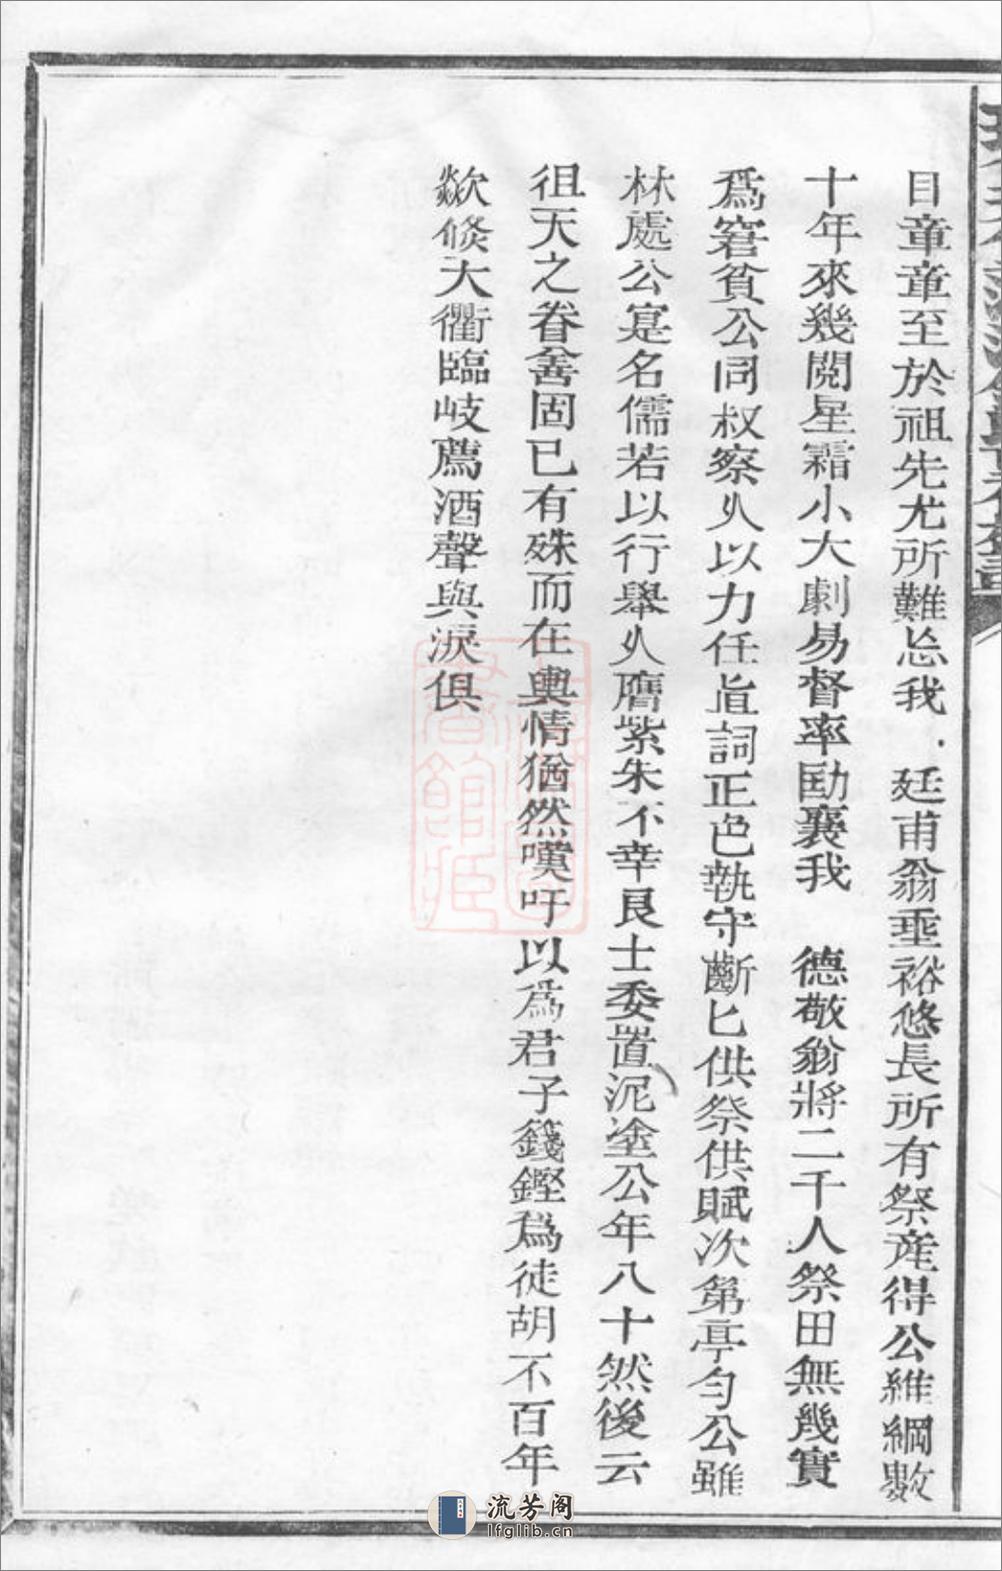 目章章至於祖先尤所難忘我廷甫翁垂裕悠長所有祭產得公維綱數
十年來幾閱星霜小大劇易督率勷襄我　德敬翁將二千人祭田無幾實
爲窘貧公同叔察乆以力任直詞正色執守斷匕供祭供賦次第亭勻公雖
林處公寔名儒若以行舉乆膺紫朱不幸良士委置泥塗公年八十然後云
徂天之眷善固已有殊而在輿情猶然嘆吁以爲君子籛鏗爲徒胡不百年
欻倐大衢臨岐薦酒聲與淚俱
流芳阁
lfglib.cn